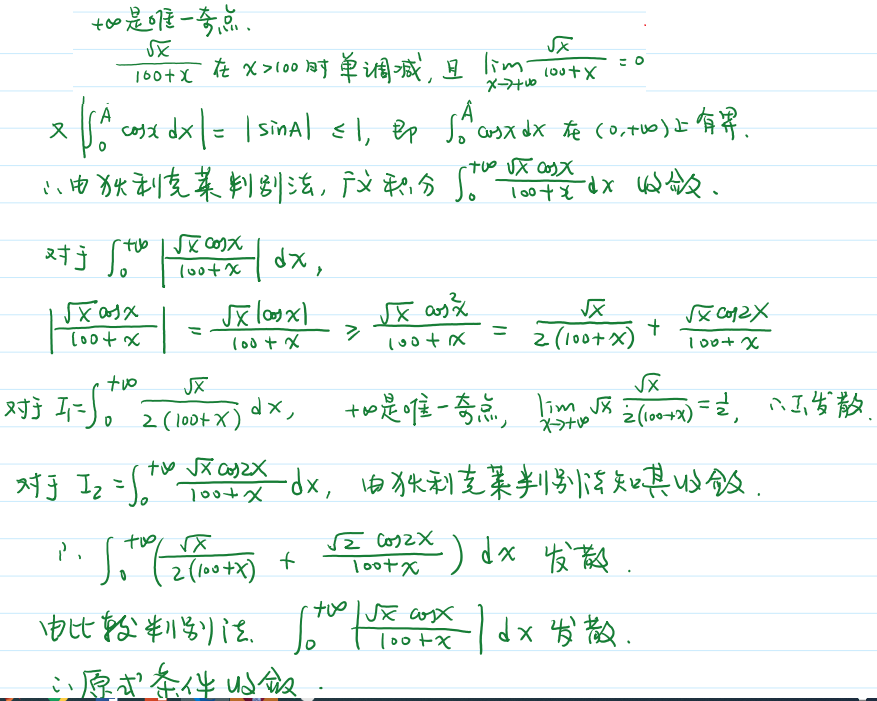 +∞是唯一奇点.
√x/(100+x) 在 x>100时 单调减, 且 lim_{x→+∞} √x/(100+x) = 0
又 |∫_0^A cosx dx| = |sinA| ≤ 1, 即 ∫_0^A cosx dx 在 (0,+∞)上 有界.
∴由狄利克莱判别法, 广义积分 ∫_0^{+∞} √x cosx/(100+x) dx 收敛.
对于 ∫_0^{+∞} |√x cosx/(100+x)| dx,
|√x cosx/(100+x)| = √x|cosx|/(100+x) ≥ √x cos²x/(100+x) = √x/(2(100+x)) + √x cos2x/(100+x)
对于 I₁=∫_0^{+∞} √x/(2(100+x)) dx, +∞是唯一奇点, lim_{x→+∞} √x √x/(2(100+x)) = 1/2, ∴I₁发散.
对于 I₂=∫_0^{+∞} √x cos2x/(100+x) dx, 由狄利克莱判别法知其收敛.
∴ ∫_0^{+∞} (√x/(2(100+x)) + √2 cos2x/(100+x)) dx 发散.
由比较判别法. ∫_0^{+∞} |√x cosx/(100+x)| dx 发散.
∴原式条件收敛.